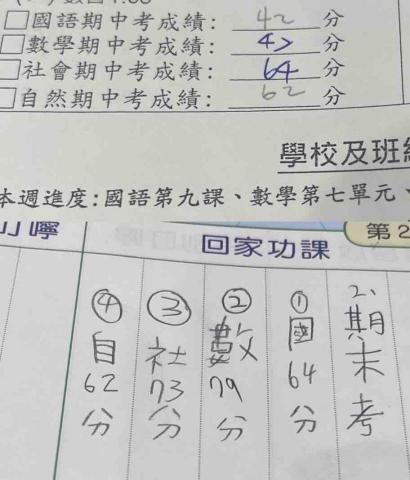 □國語期中考成績：42分
□數學期中考成績：42分
□社會期中考成績：64分
□自然期中考成績：62分
學校及班
本週進度：國語第九課、數學第七單元、
叮嚀
回家功課
第2
2、期末考
①國64分
②數79分
③社73分
④自62分